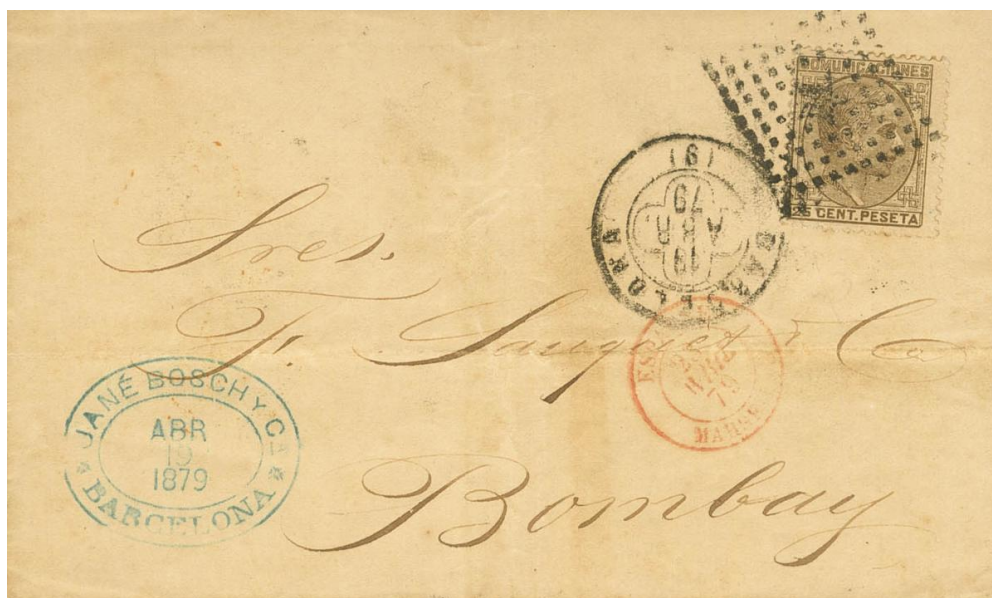 COMUNICACIONES
25 CENT. PESETA
BARCELONA
(6)
19
ABR
79
Sres.
F. Sauquet & Ca
ESP.
79
MARSE
JANÉ BOSCH Y Cª
ABR
19
1879
BARCELONA
Bombay